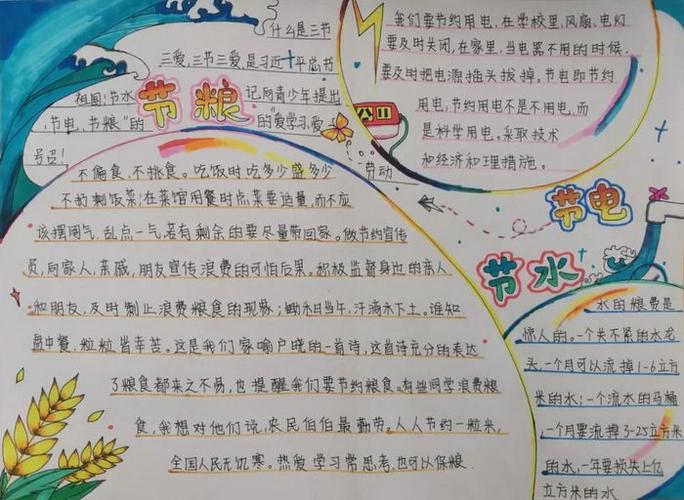 什么是三节
三爱,三节三爱是习近平总书
记向青少年提出
的爱学习,爱
劳动
祖国;节水
,节电,节粮"的
号召!
节粮
不偏食,不挑食。吃饭时吃多少盛多少
不扔剩饭菜;在菜馆用餐时点菜要适量,而不应
该摆阔气,乱点一气,若有剩余的要尽量带回家。做节约宣传
员,向家人,亲戚,朋友宣传浪费的可怕后果。积极监督身边的亲人
和朋友,及时制止浪费粮食的现象;锄禾日当午,汗滴禾下土。谁知
盘中餐,粒粒皆辛苦。这是我们家喻户晓的一首诗,这首诗充分的表达
了粮食都来之不易,也提醒我们要节约粮食。有些同学浪费粮
食,我想对他们说,农民伯伯最勤劳。人人节约一粒米,
全国人民无饥寒。热爱学习常思考,也可以保粮.
我们要节约用电,在学校里,风扇、电灯
要及时关闭,在家里,当电器不用的时候,
要及时把电源插头拔掉。节电即节约
用电,节约用电不是不用电,而
是科学用电。采取技术
和经济和理措施。
节电
节水
水的粮费是
惊人的。一个关不紧的水龙
头,一个月可以流掉1-6立方
米的水;一个流水的马桶
一个月要流掉3-25立方米
的水,一年要损失上亿
立方米的水